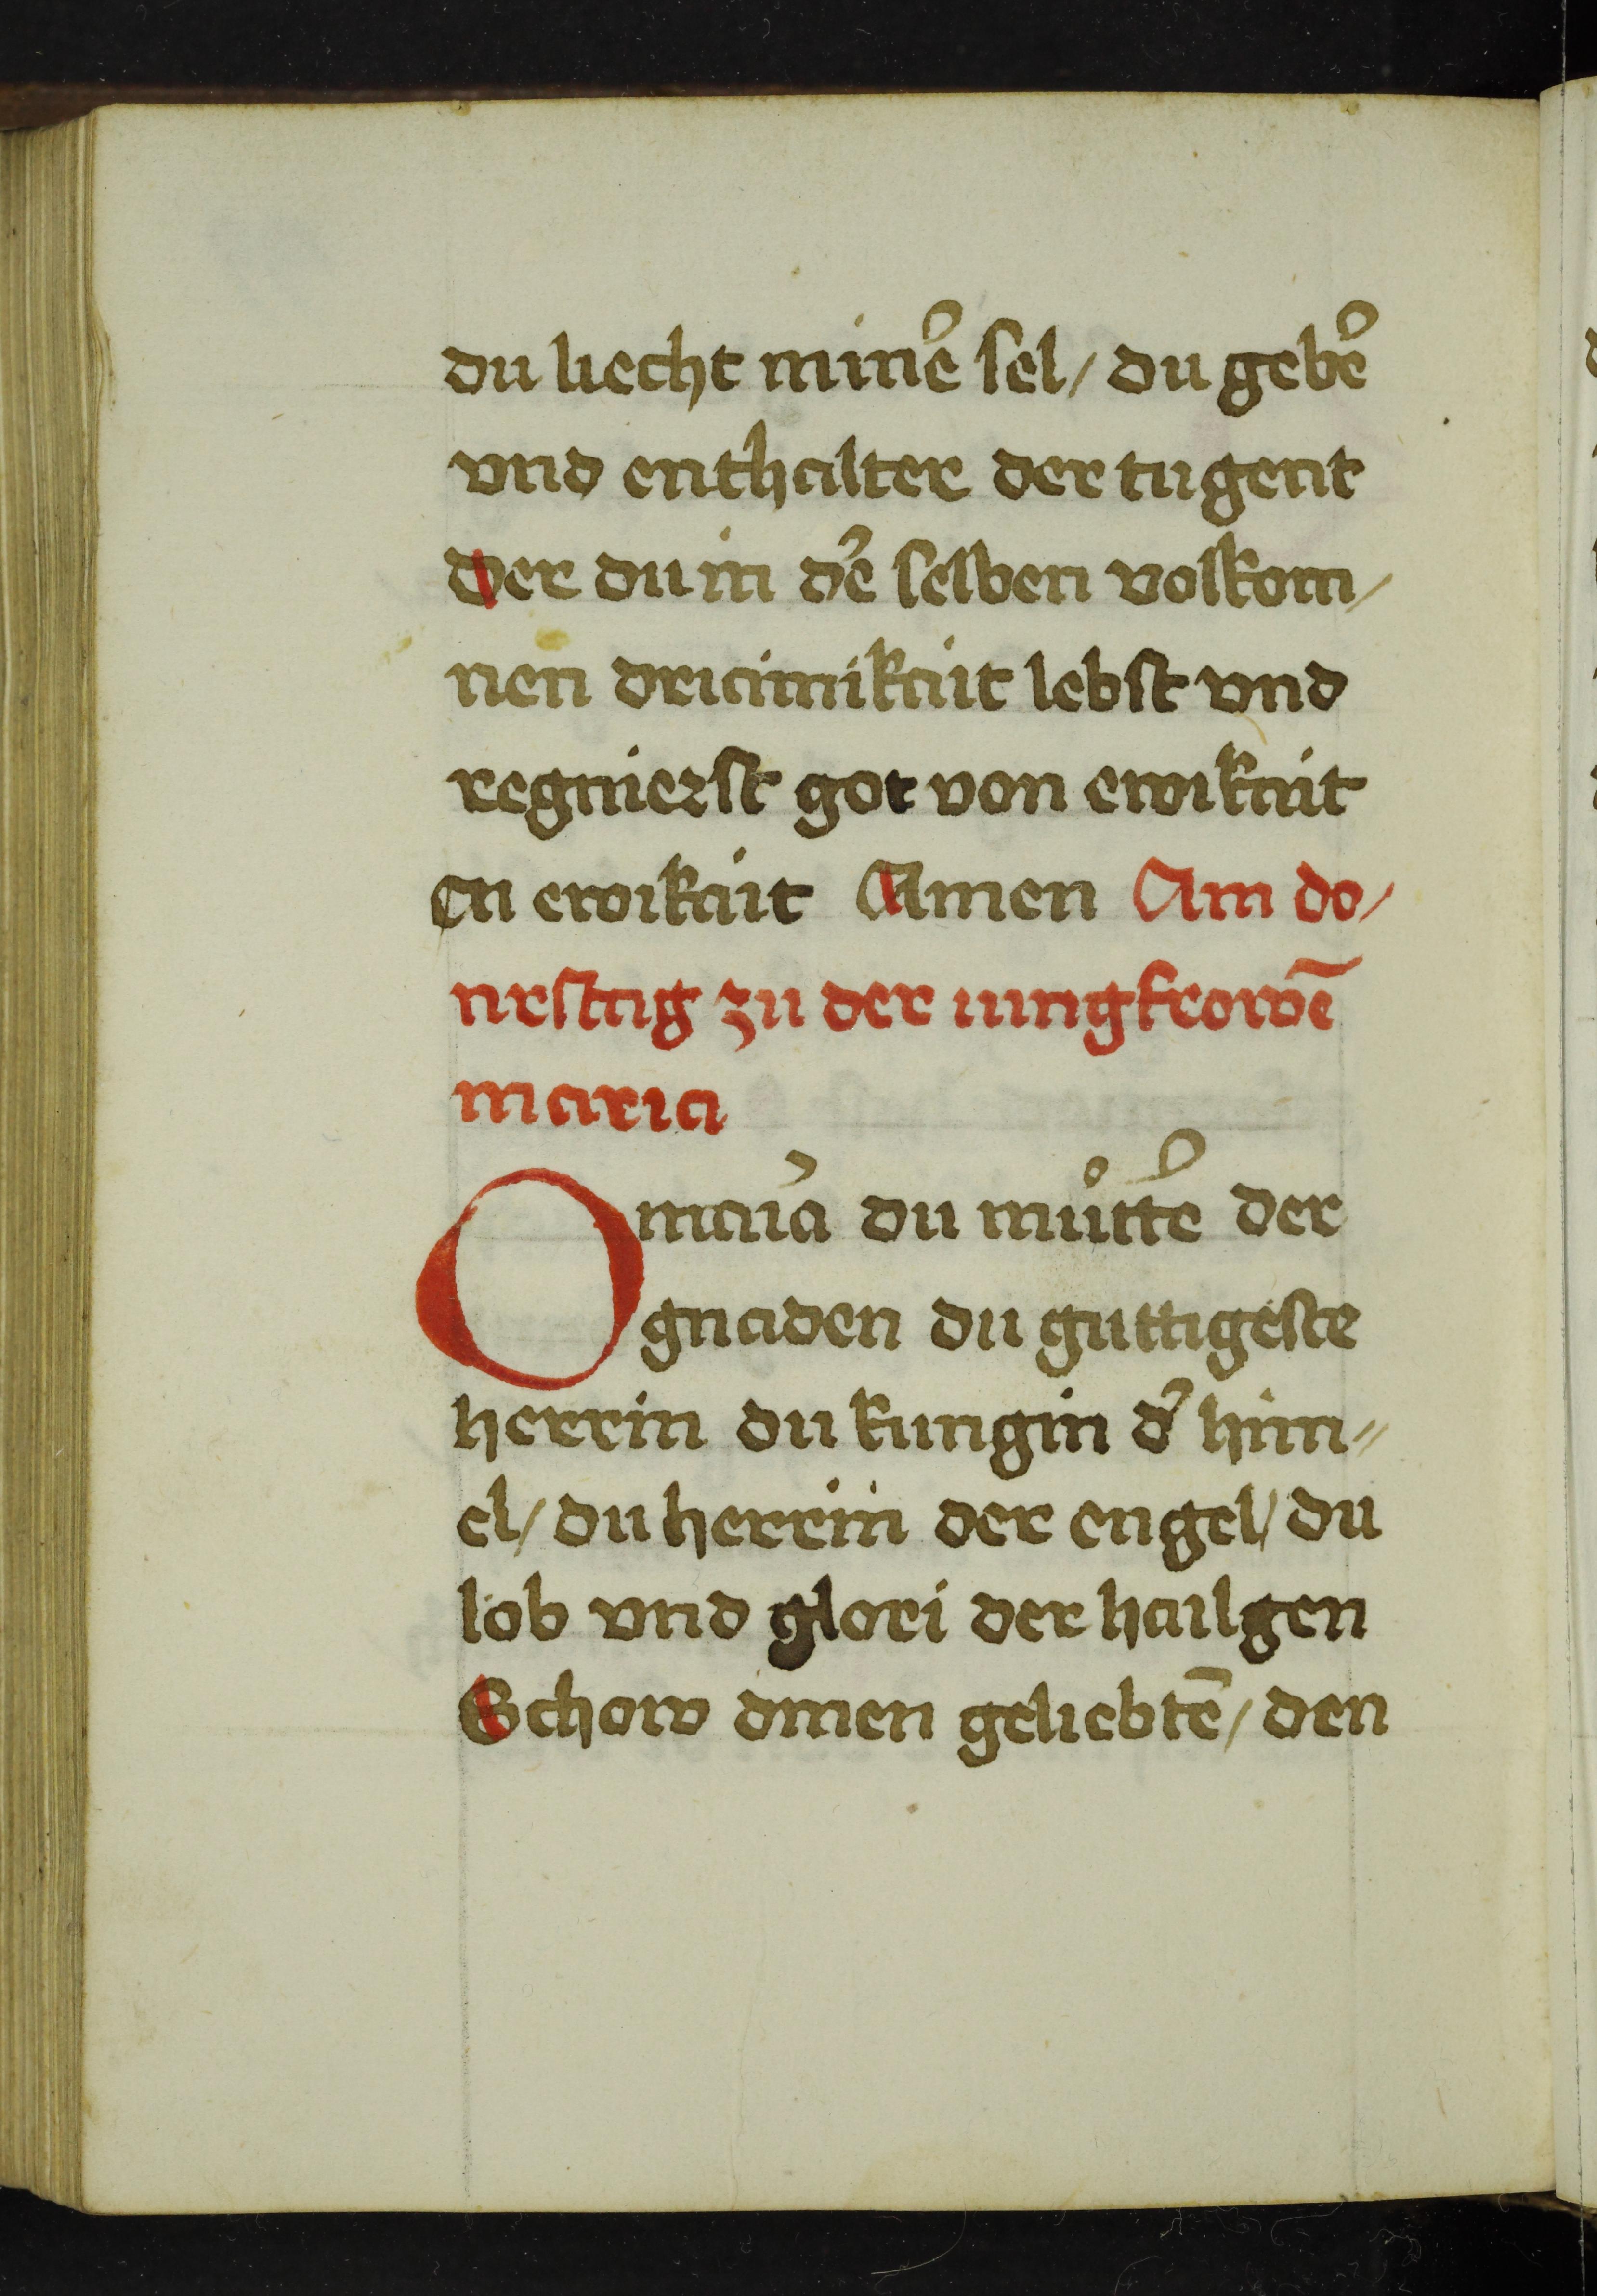 du liecht min̾e sel / du geb̾e
vnd enthalter der tugent
Der du in d̾e selben volkom /
nen driainikait lebst vnd
regnierst got von ewikait
en ewikait Amen Am do /
nrstag zu der iungkrowē
maria
O mar̾ia du můtt̾e der
gnaden du guttigeste
herrin du kungin d̾ him //
el / du herrin der engel / du
lob vnd glori der hailgen
Schow dinen geliebtē / den